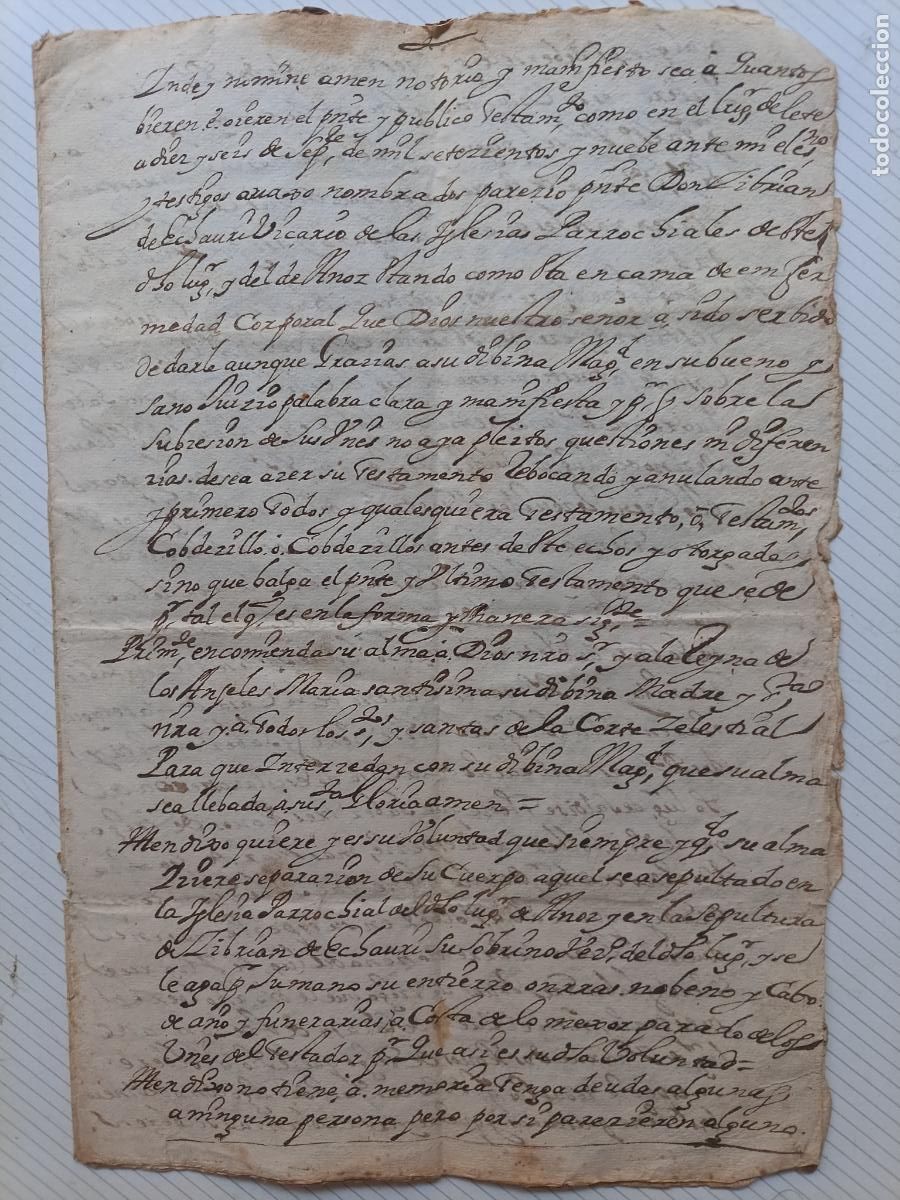 Indey nomine amen notorio y manifiesto sea a Quantos
bieren e. oieren el pnte y publico Testamto, como en el lugr, de lete
a diez y seis de Sepde, de mil seterientos y nuebe ante mi el esno
y testigos avaxo nombrados parezio pnte Don Cibrian
de Echauri Vicario de las Iglesias Parrochiales de Ste
dho lugr, y del de Anoz Stando como Sta en cama de emfer
medad Corporal que Dios nuestro señor á, sido serbido
de darle aunque Grazias a su dibina Magd, en su bueno y
sano Juizio palabra clara y manifiesta y pr q sobre la
subzesion de sus Vnes no aya pleitos questiones ni diferen
zias. desea azer su Testamento Rebocando y anulando ante
y primero Todos y qualesquiera Testamento, ó, Testamdos
Cobdezillo. o. Cobdezillos antes de Ste echos y otorgados
sino que balga el pnte y Vltimo Testamento que se de
pr, tal el q, es en la forma y Manera sigde =
Primde, encomienda su alma. a. Dios nro sr, y a la Reyna de
los Angeles Maria santisima su dibina Madre y sra
nra y a. Todos los stos, y santas de la Corte Zelestial
Para que Interzedan con su dibina Magd, que su alma
sea llebada a su sta Gloria amen =
Iten dixo quiere y es su Voluntad que siempre y qto su alma
hiziere separazion de su Cuerpo aquel sea sepultado en
la Iglesia Parrochial del dho lugr, de Anoz y en la sepultura
de Cibrian de Echauri su sobrino del dho lugr, y se
le aga pr su mano su entierro onrras. nobeno y Cabo
de año y funerarias, a Costa de lo mexor parado de los
Vnes del Testador pr Que asi es su dha Voluntad =
Iten dixo no tiene, á, memoria Tenga deudas algunas
a ninguna persona pero por si parezieren alguno.
todocoleccion